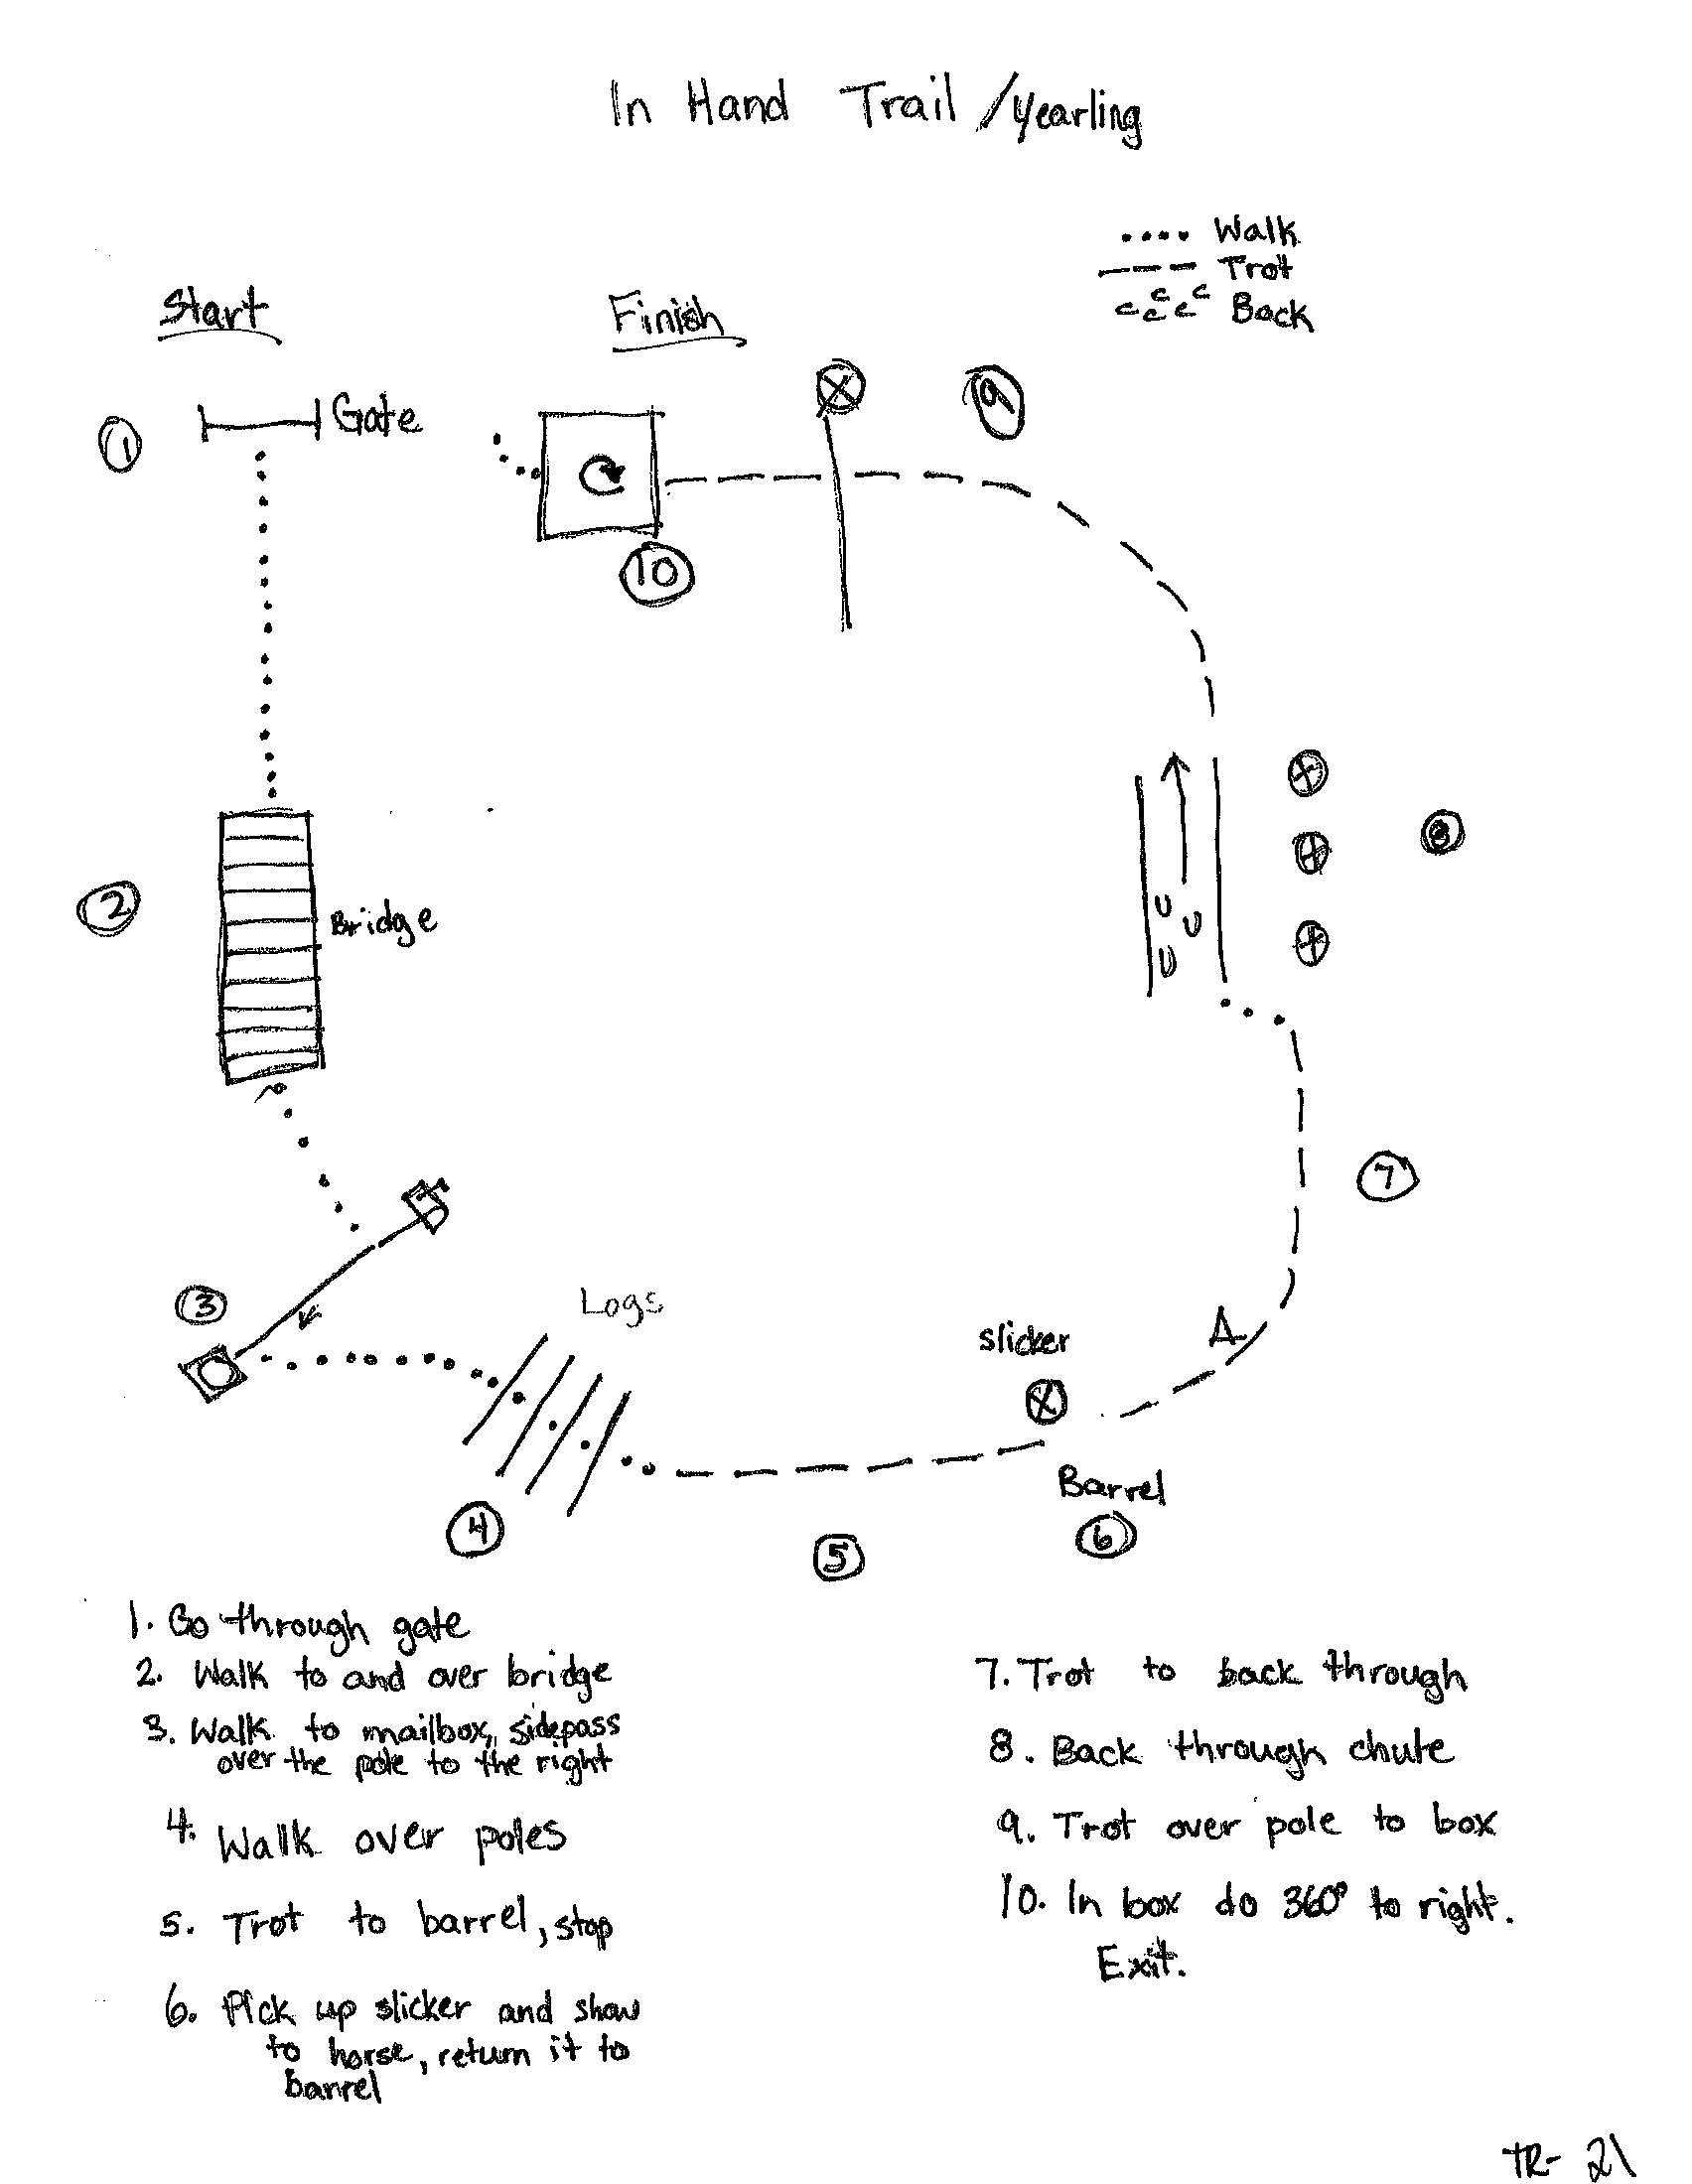 In Hand Trail / Yearling
Walk
Trot
Back
Start
Finish
Gate
1
9
10
2
Bridge
8
7
3
Logs
slicker
Barrel
4
5
6
1. Go through gate
2. Walk to and over bridge
3. Walk to mailbox, sidepass
over the pole to the right
4. Walk over poles
5. Trot to barrel, stop
6. Pick up slicker and show
to horse, return it to
barrel
7. Trot to back through
8. Back through chute
9. Trot over pole to box
10. In box do 360° to right.
Exit.
TR- 21